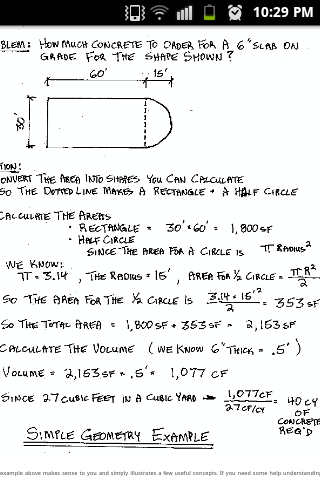 10:29 PM
BLEM: HOW MUCH CONCRETE TO ORDER FOR A 6" SLAB ON
GRADE FOR THE SHAPE SHOWN?
60' 15'
30'
TION:
ONVERT THE AREA INTO SHAPES YOU CAN CALCULATE
SO THE DOTTED LINE MAKES A RECTANGLE + A HALF CIRCLE
CALCULATE THE AREAS
• RECTANGLE = 30' × 60' = 1,800 SF
• HALF CIRCLE
SINCE THE AREA FOR A CIRCLE IS π RADIUS²
WE KNOW:
π = 3.14, THE RADIUS = 15', AREA FOR ½ CIRCLE = πR²/2
SO THE AREA FOR THE ½ CIRCLE IS 3.14 × 15'²/2 = 353 SF
SO THE TOTAL AREA = 1,800 SF + 353 SF = 2,153 SF
CALCULATE THE VOLUME (WE KNOW 6" THICK = .5')
VOLUME = 2,153 SF × .5' = 1,077 CF
SINCE 27 CUBIC FEET IN A CUBIC YARD → 1,077 CF/27 CF/CY = 40 CY
OF
CONCRETE
REQ'D
SIMPLE GEOMETRY EXAMPLE
example above makes sense to you and simply illustrates a few useful concepts. If you need some help understanding